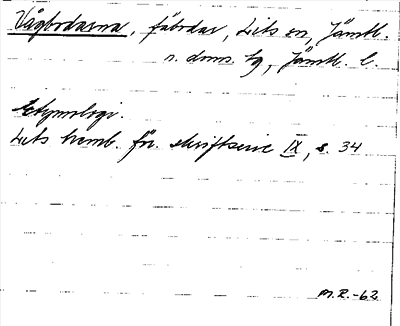 Vågbodarna, fäbodar, Lits sn, Jämtl.
n. doms. tg, Jämtl. l.
Etymologi.
Lits hemb. för. skriftserie IX, s. 34
M.R.-62